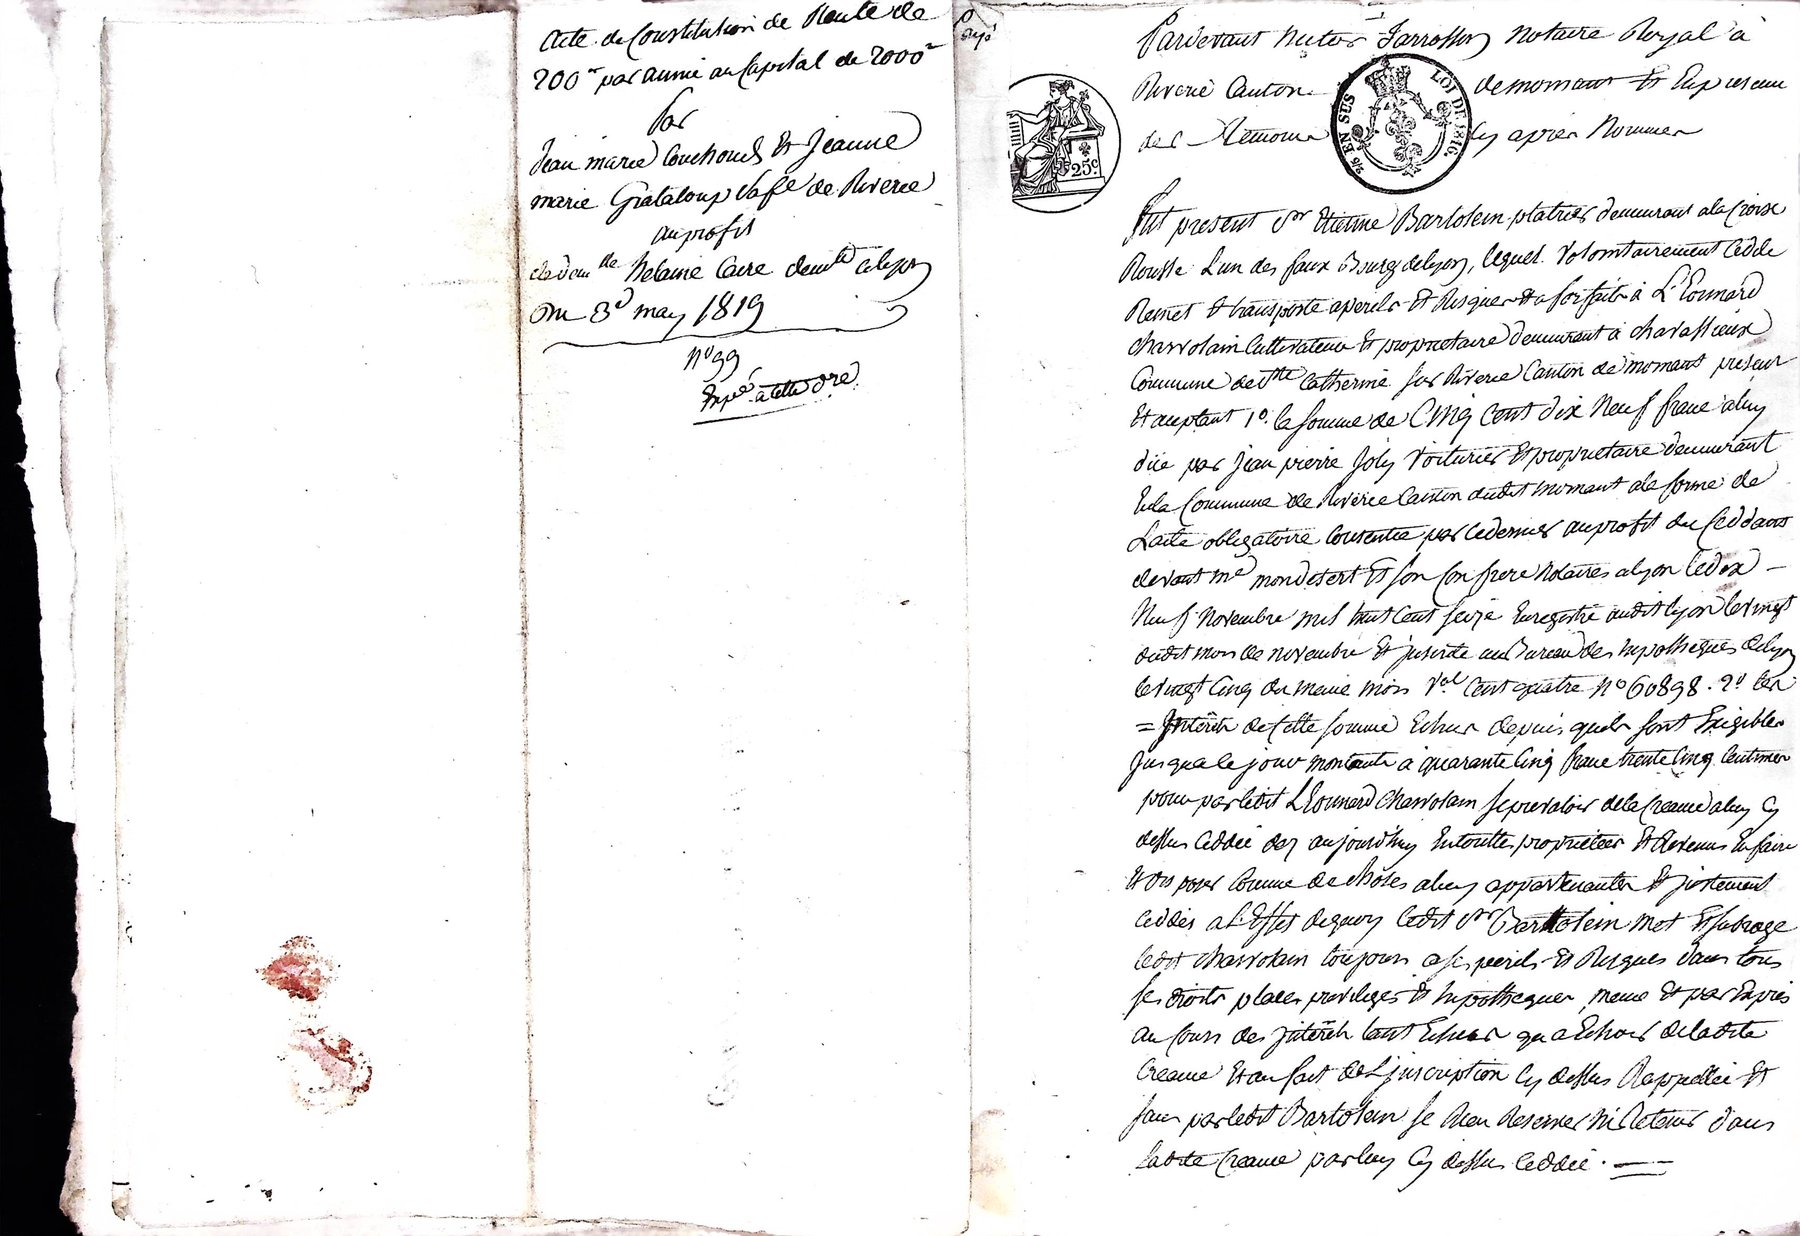 Acte de Constitution de Rente de
200 par année au Capital de 2000
Par
Jean marie Couchoud et Jeanne
marie Grataloup de Riverie
au profit
de dam.lle helaine Caire à lyon
Du 3 may 1819
N.o 99
Expé à cette
Pardevant notaire Royal à
Riverie Canton de mornant et En presence
des temoins cy après Nommés
25c
2/6 EN SUS
LOI DE 1816.
Fut present Sr Etienne Bartolein platrier demeurant a la Croix
Rousse L'un des faux Bourg de lyon, lequel volontairement Cedde
Remet et transporte a perils et Risques et a forfait à L'Eonnard
charvolain Cultivateur et proprietaire demeurant à chavassieux
Commune de Ste Catherine sur Riverie Canton de mornant present
Et acceptant 1o. la somme de Cinq Cent dix Neuf franc a luy
düe par Jean pierre Joly Voiturier et proprietaire demeurant
En la Commune de Riverie Canton dudit mornant a la forme de
L'acte obligatoire Consentie par ce dernier au profit du Ceddant
devant Me mondesert et son Confrere Notaires a lyon le dix -
Neuf Novembre mil huit Cent seize Enregistré audit lyon le vingt
dudit mois de novembre et inscrite au Bureau des hypotheques de lyon
le vingt Cinq du meme mois Vol Cent quatre No 60898. 2o les
= Interêts de Cette somme Echus depuis quils sont Exigibles
Jusqua Ce jour montants à quarante Cinq franc trente Cinq Centimes
pour par ledit L'Eonnard charvolain se prevaloir de la Creance a luy Cy
dessus Ceddée dez aujourd'huy En toutte proprietées et Revenus En faire
et disposer Comme de choses a luy appartenantes et justement
Ceddés a L'Effet de quoy ledit Sr Bartolein Met et subroge
ledit charvolain toujours a ses perils et Risques dans tous
ses droits places privileges et hypotheques, meme et par Exprès
au Cours des jnterêts tant Echus qu a Echoir de ladite
Creance et au fait de L'jnscription Cy dessus Rappellée et
sans par ledit Bartolein se Rien Reserver Ni Retenir dans
ladite Creance par luy Cy dessus Ceddée.